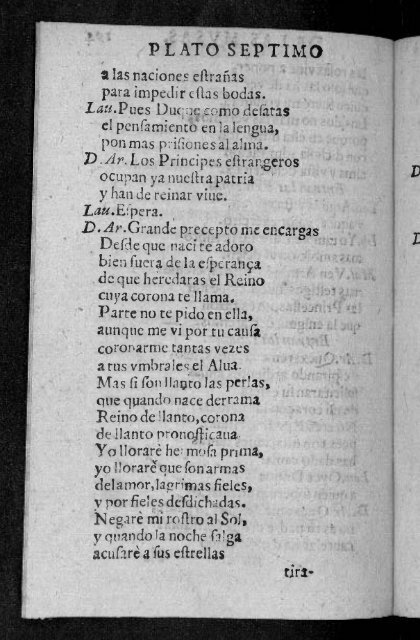 PLATO SEPTIMO
a las naciones estrañas
para impedir estas bodas.
Lau. Pues Duque como desatas
el pensamiento en la lengua,
pon mas prisiones al alma.
D. Ar. Los Principes estrangeros
ocupan ya nuestra patria
y han de reinar viue.
Lau. Espera.
D. Ar. Grande precepto me encargas
Desde que naci te adoro
bien fuera de la esperança
de que heredaras el Reino
cuya corona te llama.
Parte no te pido en ella,
aunque me vi por tu causa
coronarme tantas vezes
a tus vmbrales el Alua.
Mas si son llanto las perlas,
que quando nace derrama
Reino de llanto, corona
de llanto pronosticaua
Yo llorarè hermosa prima,
yo llorarè que son armas
del amor, lagrimas fieles,
y por fieles desdichadas.
Negarè mi rostro al Sol,
y quando la noche salga
acusarè a sus estrellas
tira-